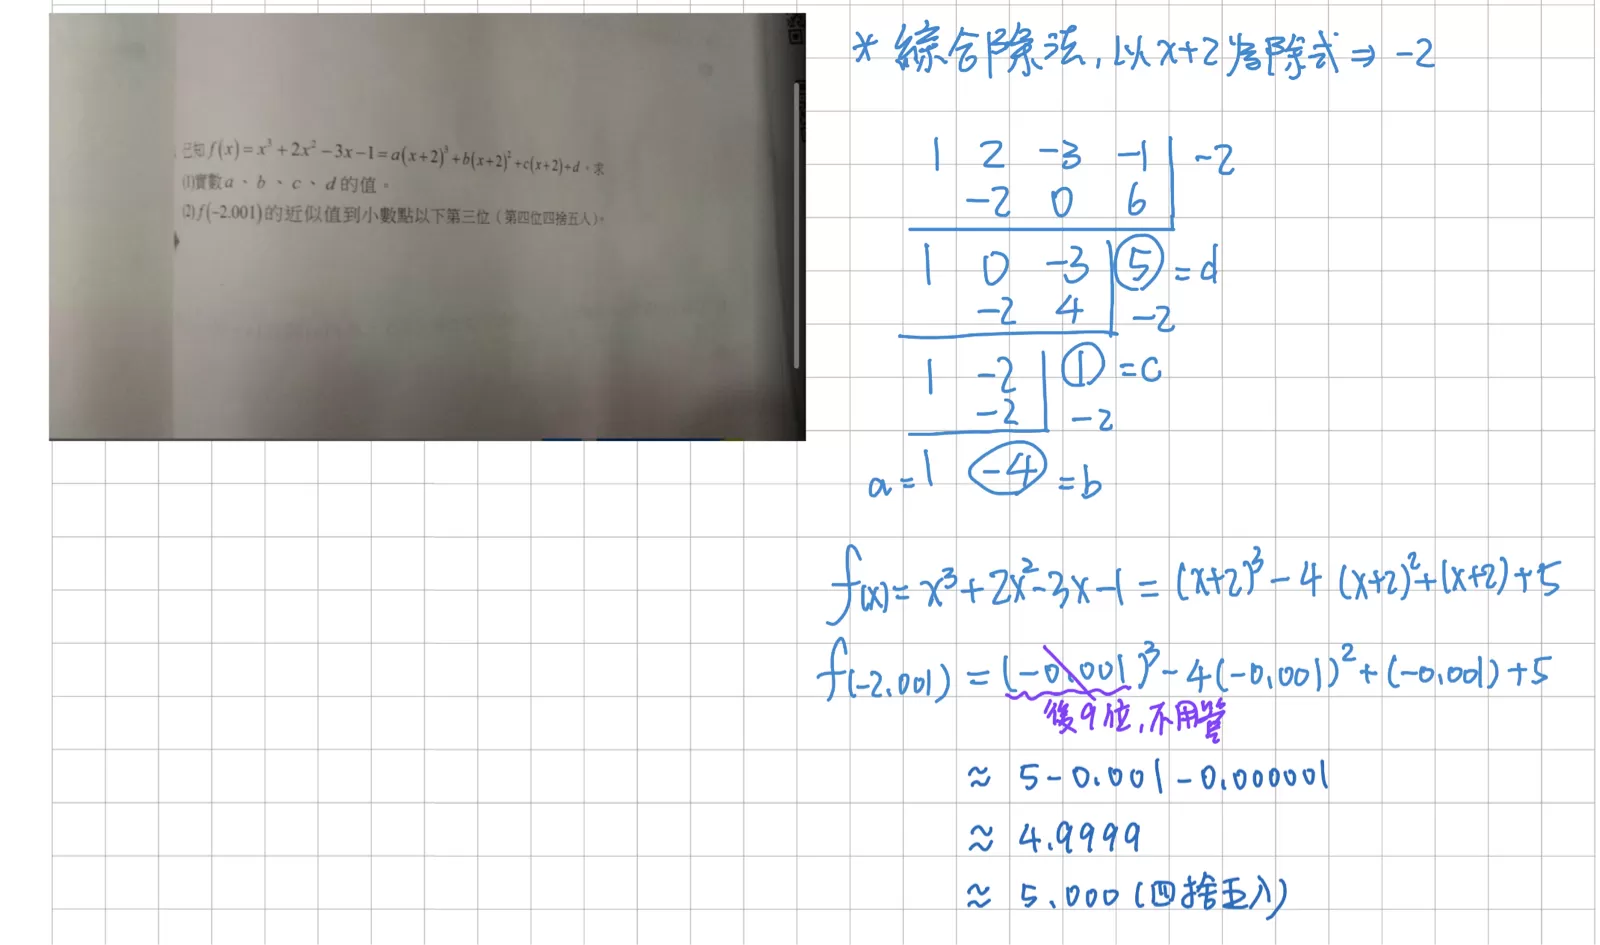 已知f(x)=x³+2x²-3x-1=a(x+2)³+b(x+2)²+c(x+2)+d，求
(1)實數a、b、c、d的值。
(2)f(-2.001)的近似值到小數點以下第三位（第四位四捨五入）。
* 綜合除法, 以x+2為除式⇒ -2
1 2 -3 -1 | -2
-2 0 6
1 0 -3 5 = d
-2 4 -2
1 -2 1 = c
-2 -2
a = 1 -4 = b
f(x) = x³+2x²-3x-1 = (x+2)³-4(x+2)²+(x+2)+5
f(-2.001) = (-0.001)³-4(-0.001)²+(-0.001)+5
後9位,不用管
≈ 5-0.001-0.000001
≈ 4.9999
≈ 5.000 (四捨五入)